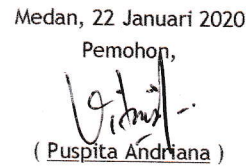 Medan, 22 Januari 2020
Pemohon,
( Puspita Andriana )